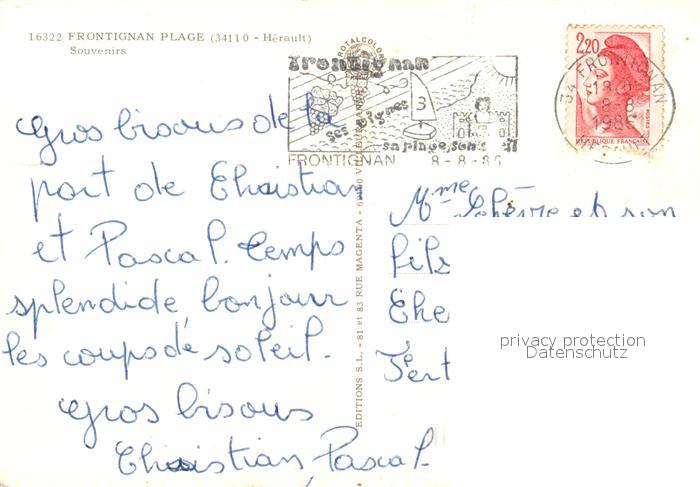 16322 FRONTIGNAN PLAGE (34110 - Hérault)
Souvenirs
Frontignan
ses vignes
3
sa plage, son
FRONTIGNAN 8-8-86
2,20
34 FRONTIGNAN
18 H
8-8
1986
POSTES
REPUBLIQUE FRANÇAISE
Gros bisous de la
part de Christian
et Pascal. Temps
splendide, bonjour
les coups de soleil.
Gros bisous
Christian, Pascal.
EDITIONS S.L. - 81 et 83 RUE MAGENTA - 69100
Mme Lefèvre et son
fils
Che
privacy protection
Datenschutz